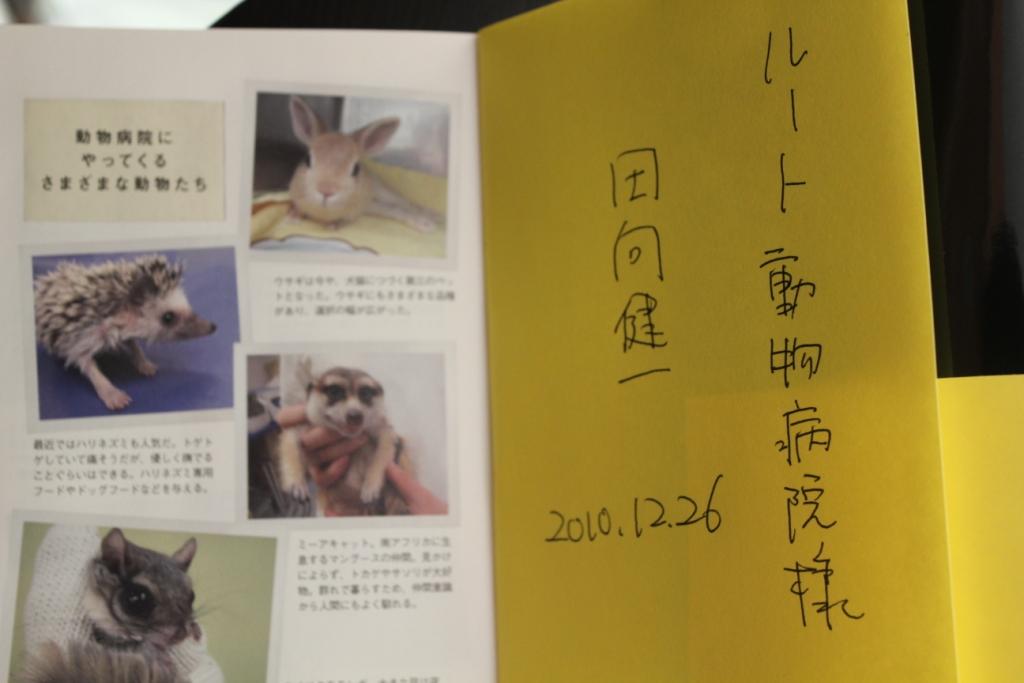 動物病院に
やってくる
さまざまな動物たち
ウサギは今や、犬猫につづく第三のペッ
トとなった。ウサギにもさまざまな品種
があり、選択の幅が広がった。
最近ではハリネズミも人気だ。トゲト
ゲしていて痛そうだが、優しく撫でる
ことぐらいはできる。ハリネズミ専用
フードやドッグフードなどを与える。
ミーアキャット。南アフリカに生
息するマングースの仲間。見かけ
によらず、トカゲやサソリが大好
物。群れで暮らすため、仲間意識
から人間にもよく馴れる。
ルート動物病院様
田向健一
2010.12.26